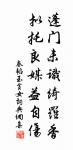 蓬门未识绮罗香
拟托良媒益自伤
秦韬玉贫女词兵阑素